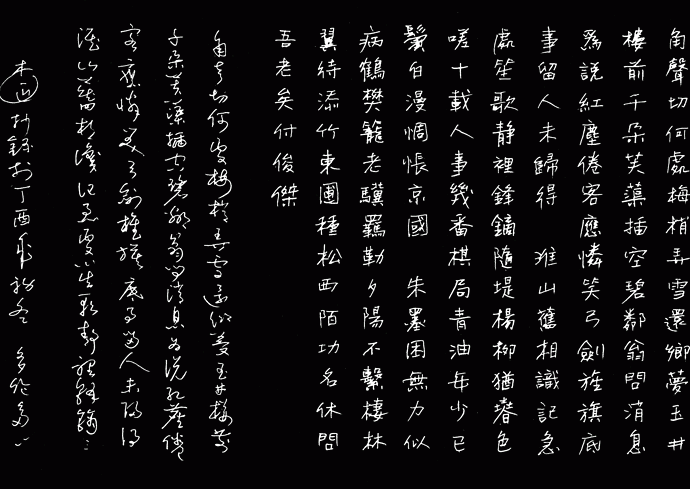 角聲切何處梅梢弄雪還鄉夢玉井
樓前千朵芙蕖插空碧鄰翁問消息
為說紅塵倦客應憐笑弓劍旌旗底
事留人未歸得 淮山舊相識記急
處笙歌靜裡鋒鏑隨堤楊柳猶春色
嗟十載人事幾番棋局青油年少已
鬢白漫惆悵京國 朱墨困無力似
病鶴樊籠老驥羈勒夕陽不繫棲林
翼待添竹東圃種松西陌功名休問
吾老矣付俊傑
角聲切何處梅梢弄雪還鄉夢玉井樓前
千朵芙蕖插空碧鄰翁問消息為說紅塵倦
客應憐笑弓劍旌旗底事留人未歸得
淮山舊相識記急處笙歌靜裡鋒鏑
抄錄於丁酉年初冬